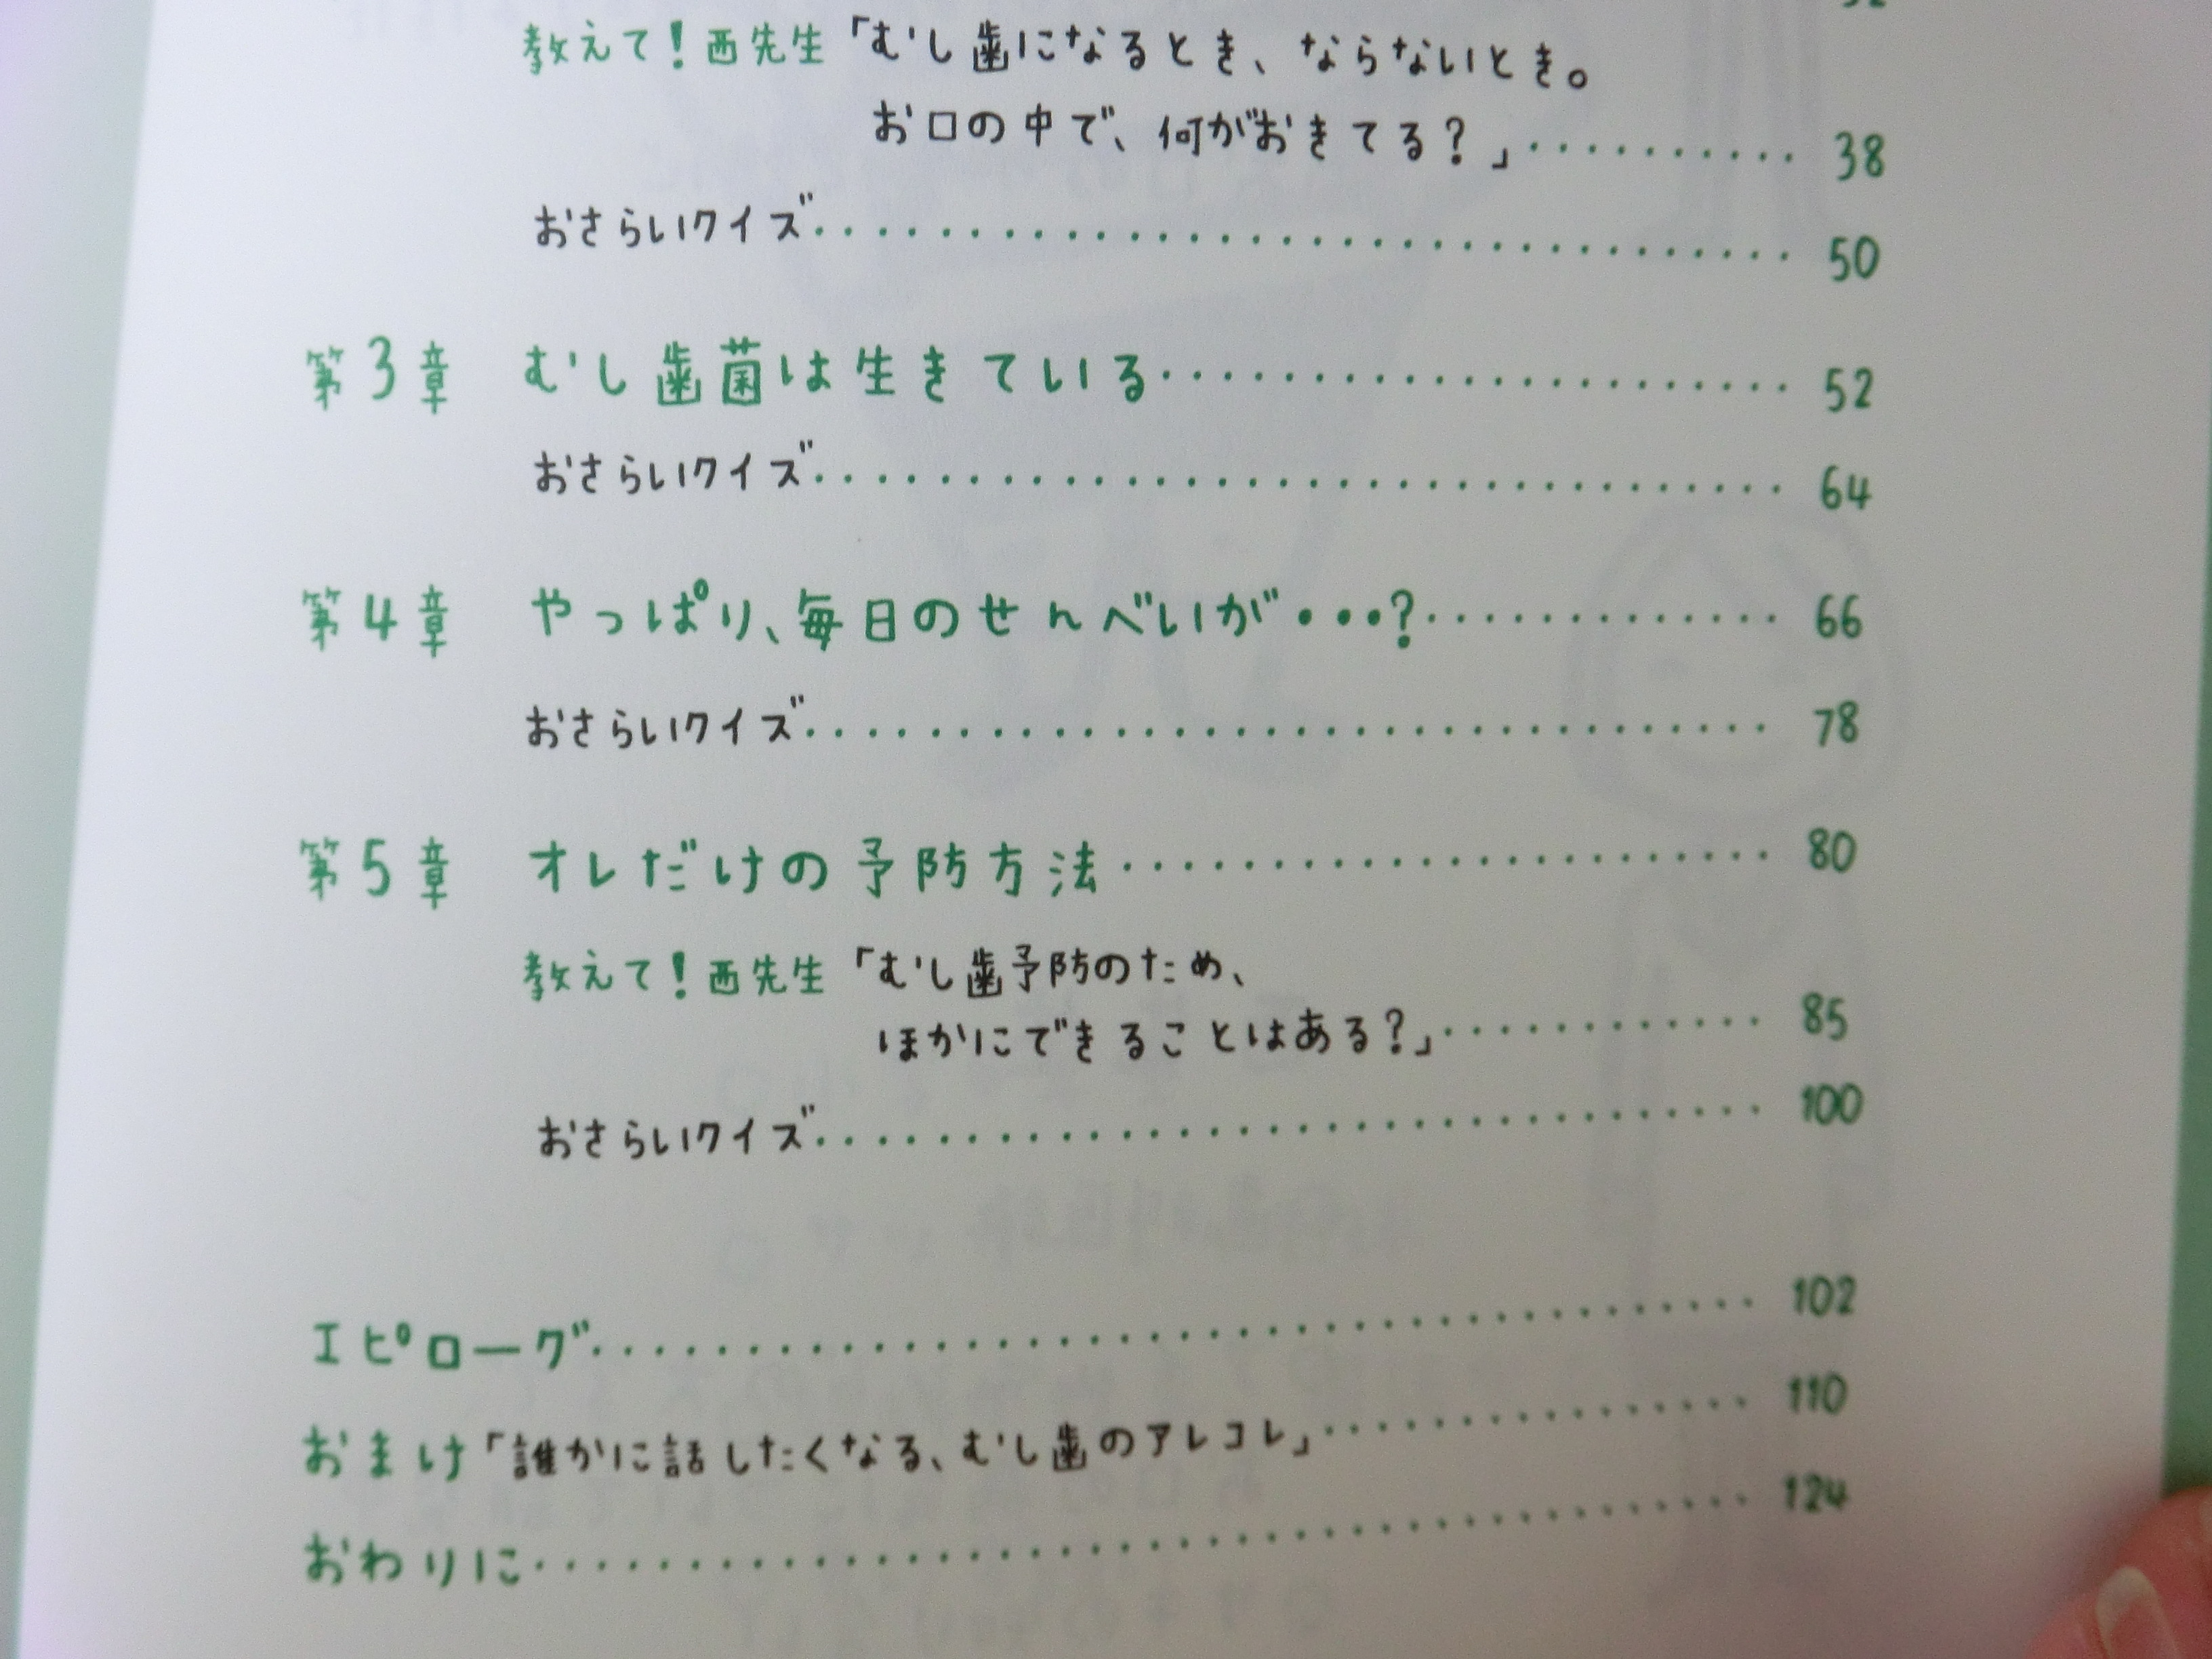 教えて！西先生「むし歯になるとき、ならないとき。
お口の中で、何がおきてる？」・・・・・・・・・・38
おさらいクイズ・・・・・・・・・・・・・・・・・・・・・・・・・・・・・・・・50
第3章 むし歯菌は生きている・・・・・・・・・・・・・・・・・・・・・52
おさらいクイズ・・・・・・・・・・・・・・・・・・・・・・・・・・・・・・・・64
第4章 やっぱり、毎日のせんべいが・・・?・・・・・・・・・・・・66
おさらいクイズ・・・・・・・・・・・・・・・・・・・・・・・・・・・・・・・・78
第5章 オレだけの予防方法・・・・・・・・・・・・・・・・・・・・・・80
教えて！西先生「むし歯予防のため、
ほかにできることはある？」・・・・・・・・・・・・85
おさらいクイズ・・・・・・・・・・・・・・・・・・・・・・・・・・・・・・・・100
エピローグ・・・・・・・・・・・・・・・・・・・・・・・・・・・・・・・・・・・・・・102
おまけ「誰かに話したくなる、むし歯のアレコレ」・・・・・・・・・・・・・・・110
おわりに・・・・・・・・・・・・・・・・・・・・・・・・・・・・・・・・・・・・・・・・124